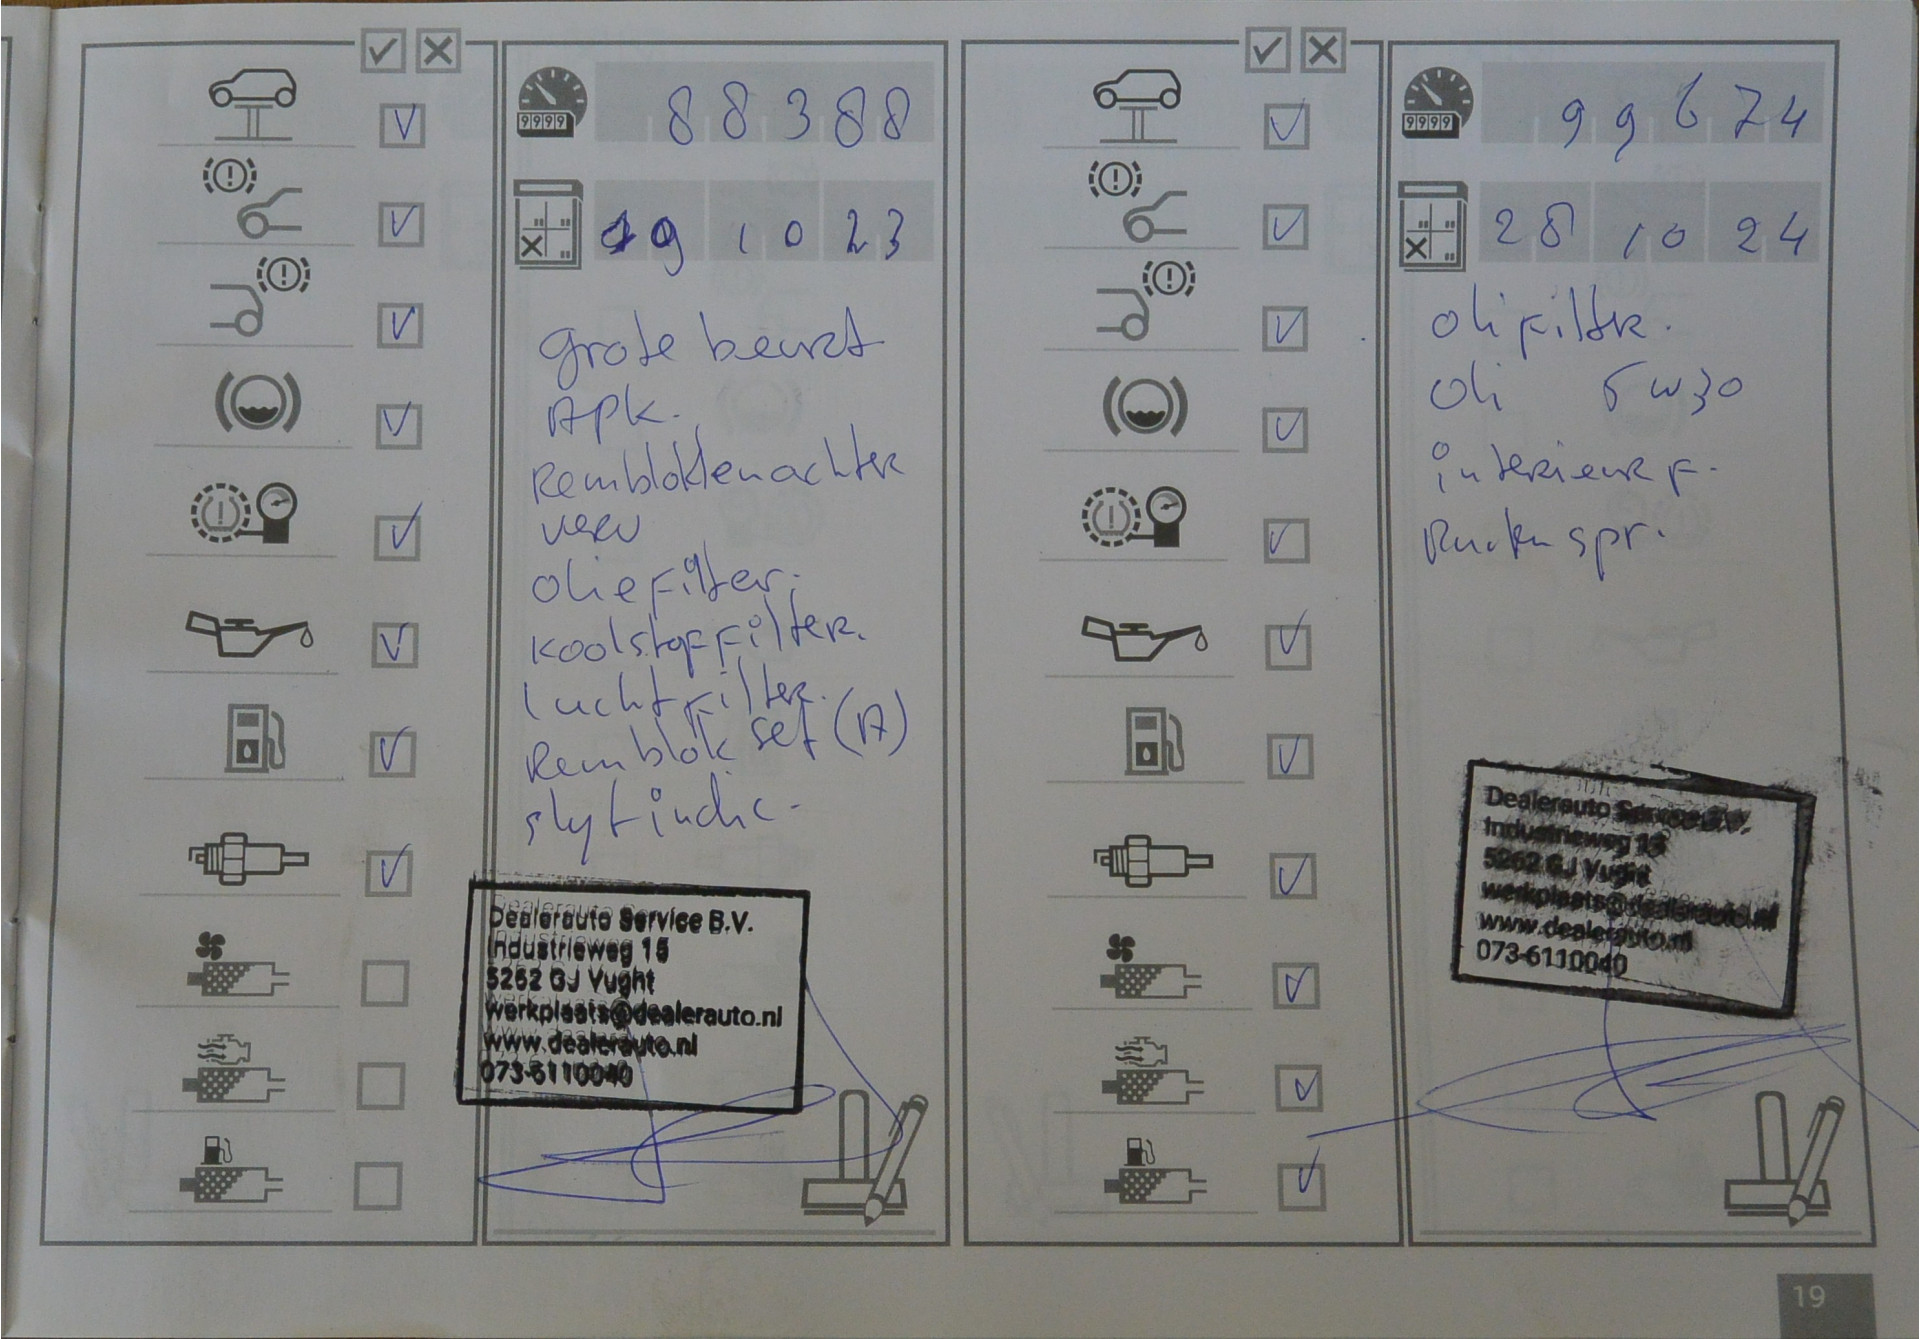 9999
88388
19 10 23
grote beurt
APK.
Remblokken achter
verv
oliefilter.
koolstoffilter.
luchtfilter.
Remblok set (A)
slyt indic.
Dealerauto Service B.V.
Industrieweg 15
5262 GJ Vught
werkplaats@dealerauto.nl
www.dealerauto.nl
073-6110040
9999
99674
28 10 24
oli filter.
oli 5w30
interieur F.
Ruiten spr.
Dealerauto Service B.V.
Industrieweg 15
5262 GJ Vught
werkplaats@dealerauto.nl
www.dealerauto.nl
073-6110040
19